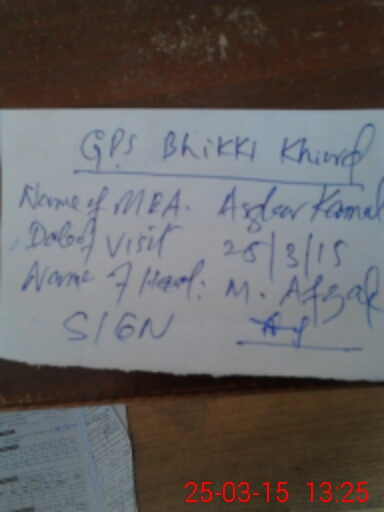 GPS Bhikki Khurd
Name of MEA. Asghar Kamal
Date of Visit 25/3/15
Name of Head: M. Afzal
SIGN
25-03-15 13:25